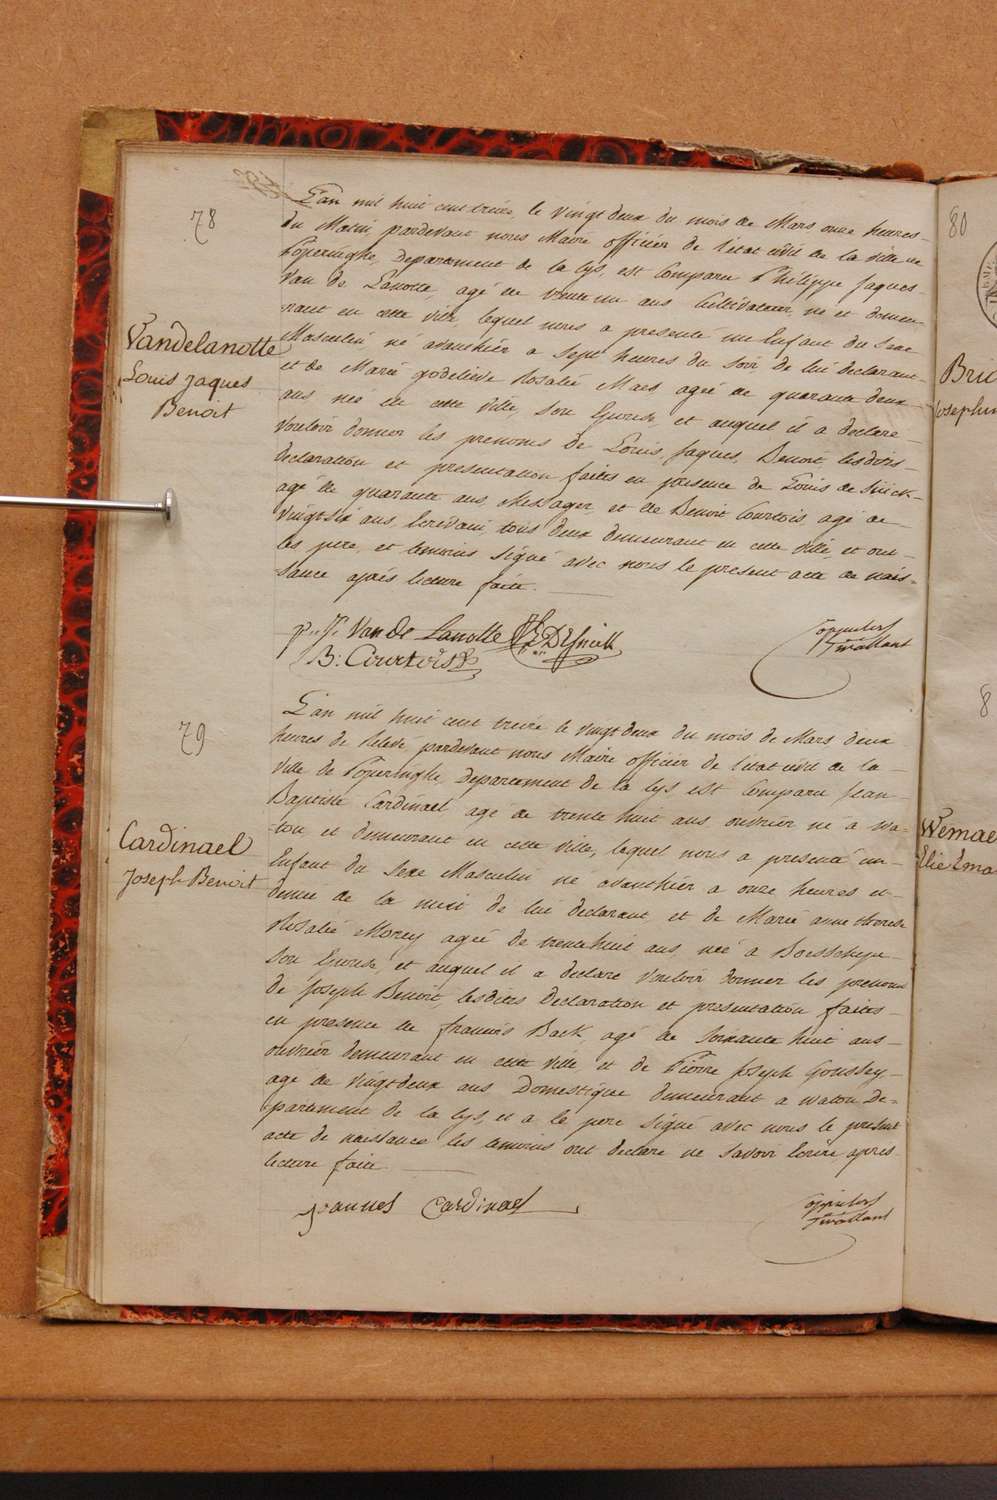 78
Vandelanotte
Louis Jaques
Benoit
L'an mil huit cent treize, le vingt deux du mois de Mars onze heures
du Matin, pardevant nous Maire officier de l'état civil de la ville de
Poperinghe, Departement de la Lys, est Comparu Philippe Jaques
Van de Lanotte, agé de trente un ans Cultivateur, né et demeu-
rant en cette ville lequel nous a presenté un Enfant du Sexe
Masculin né avanthier a Sept heures du Soir de lui declarant
et de Marie godelieve Rosalie Maes agée de quarante deux
ans née en cette ville, son Epouse, et auquel il a declaré
vouloir donner les prenoms de Louis, Jaques, Benoit, lesdits
declaration et presentation faites en presence de Louis de Snick
agé de quarante ans, Messager, et de Benoit Courtois, agé de
Vingt six ans, Ecrivain, tous deux demeurant en cette ville et ont
les pere, et temoins signé avec nous le present acte de nais=
sance après lecture faite.
p: j: Van de Lanotte L: DeSnick
B: Courtois
79
Cardinael
Joseph Benoit
L'an mil huit cent treize le vingt deux du mois de Mars deux
heures de relevé, pardevant nous Maire officier de l'état civil de la
Ville de Poperinghe, Departement de la Lys est Comparu Jean
Baptiste Cardinael agé de trente huit ans ouvrier né a wa-
tou et demeurant en cette ville, lequel nous a presenté un
Enfant du Sexe Masculin né avanthier a onze heures et
demie de la nuit de lui declarant et de Marie anne therese
Rosalie Morey agée de trente huit ans, née a Boesschepe
son Epouse, et auquel il a declaré vouloir donner les prenoms
de Joseph Benoit, lesdites Declaration et presentation faites
en presence de francois Back, agé de soixante huit ans
ouvrier demeurant en cette ville et de Pierre Joseph Goussey
agé de vingt deux ans Domestique demeurant a watou De=
partement de la Lys, et a le pere signé avec nous le present
acte de naissance les temoins ont declaré ne savoir Ecrire apres
lecture faite.
joannes Cardinael
80
Bric
Josephin
8
Wemae
Elie Ema